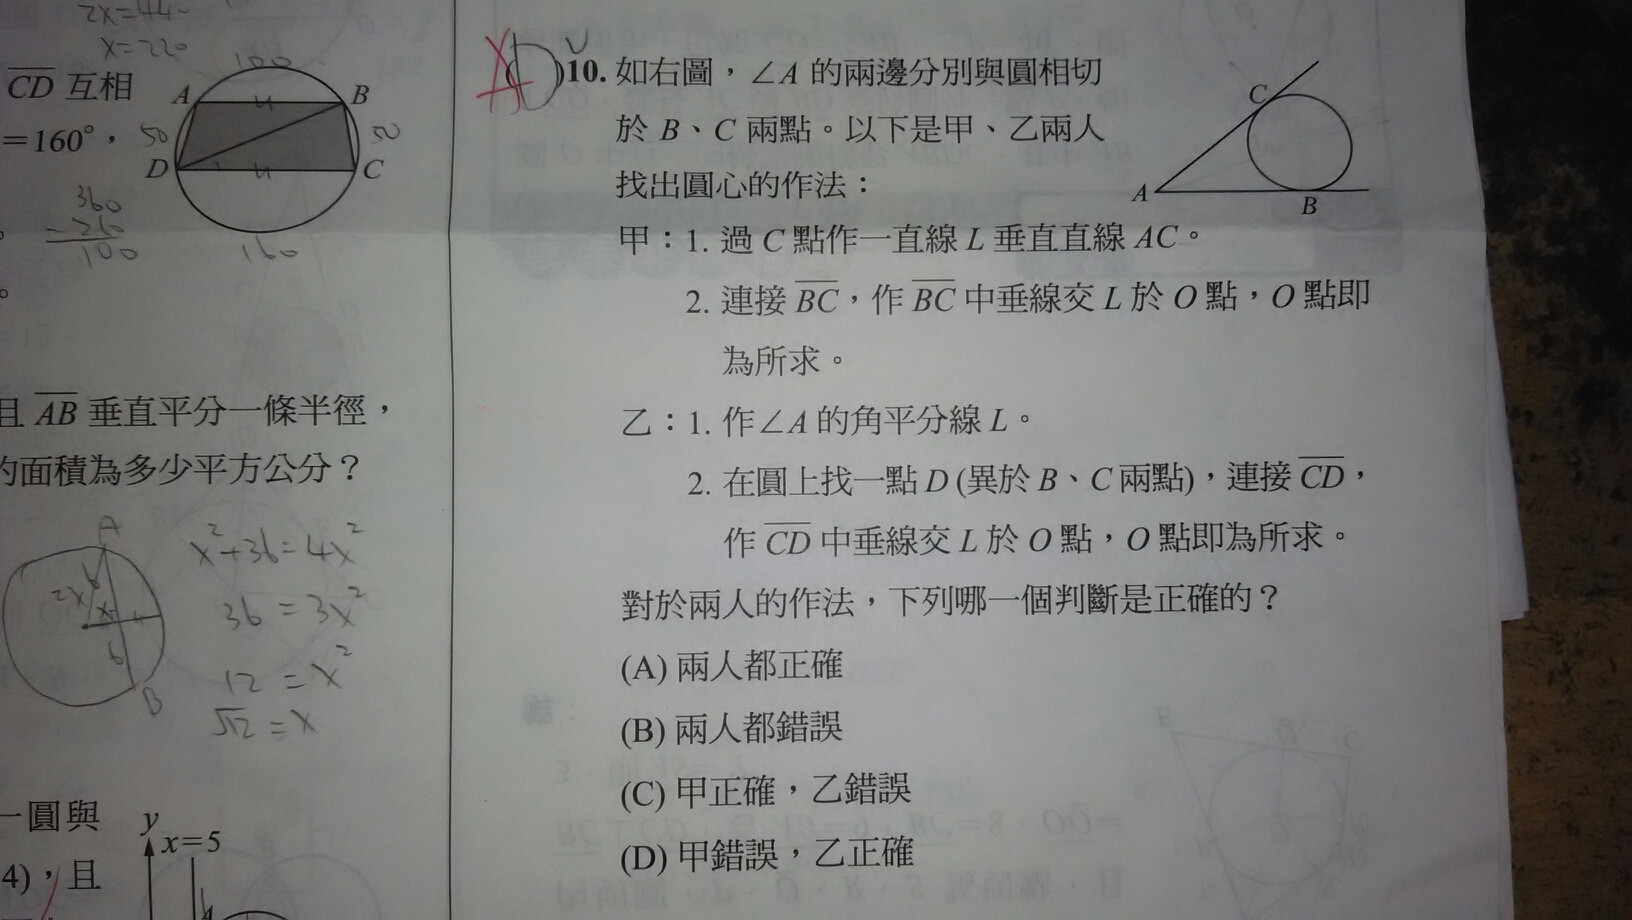 2x=440
x=220
CD 互相
=160°，
360
-260
100
。
100
A
B
50
50
D
C
160
且 AB 垂直平分一條半徑，
的面積為多少平方公分？
A
2x
6
x
6
B
x²+36=4x²
36=3x²
12=x²
√12=x
一圓與
4)，且
y
x=5
A
(D)10. 如右圖，∠A 的兩邊分別與圓相切
於 B、C 兩點。以下是甲、乙兩人
找出圓心的作法：
C
A
B
甲：1. 過 C 點作一直線 L 垂直直線 AC。
2. 連接 BC，作 BC 中垂線交 L 於 O 點，O 點即
為所求。
乙：1. 作∠A 的角平分線 L。
2. 在圓上找一點 D (異於 B、C 兩點)，連接 CD，
作 CD 中垂線交 L 於 O 點，O 點即為所求。
對於兩人的作法，下列哪一個判斷是正確的？
(A) 兩人都正確
(B) 兩人都錯誤
(C) 甲正確，乙錯誤
(D) 甲錯誤，乙正確